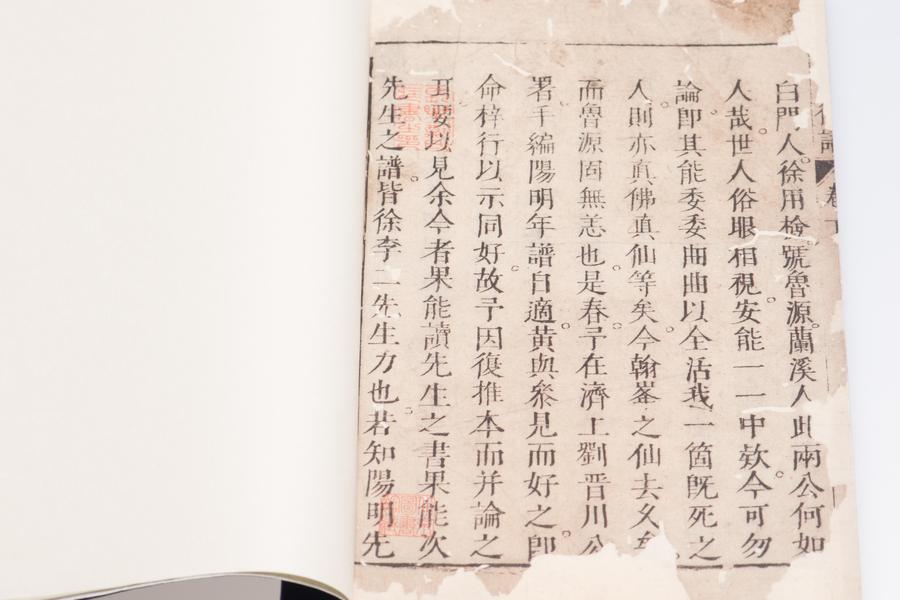 後語
白門人徐用檢號魯源蘭溪人此兩公何如
人哉世人俗眼相視安能一一中欵今可勿
論即其能委委曲曲以全活我一箇既死之
人則亦真佛真仙等矣今翰峯之仙去久矣
而魯源固無恙也是春予在濟上劉晋川公
署手編陽明年譜自適黃與參見而好之即
命梓行以示同好故予因復推本而并論之
耳要以見余今者果能讀先生之書果能次
先生之譜皆徐李二先生力也若知陽明先